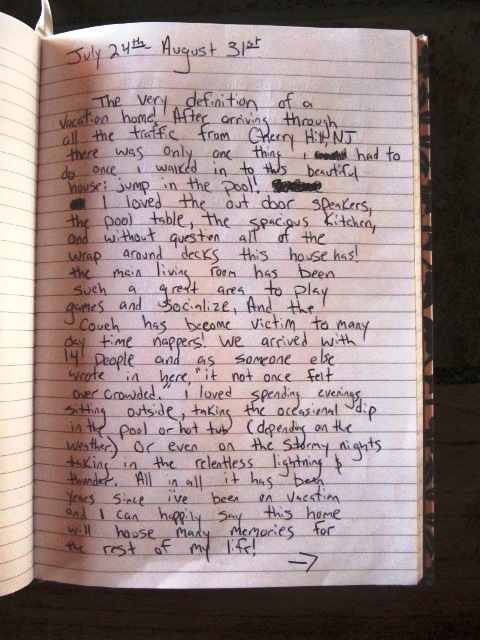 July 24th August 31st
The very definition of a
vacation home! After arriving through
all the traffic from Cherry Hill, NJ
there was only one thing I had to
do once i walked in to this beautiful
house: jump in the pool!
I loved the out door speakers,
the pool table, the spacious kitchen,
and without question all of the
wrap around decks this house has!
the main living room has been
such a great area to play
games and socialize, And the
Couch has become victim to many
day time nappers! We arrived with
14! people and as someone else
wrote in here, "it not once felt
over crowded." i loved spending evenings
sitting outside, taking the occasional dip
in the pool or hot tub (depending on the
weather) Or even on the stormy nights
taking in the relentless lightning &
thunder. All in all it has been
years since i've been on vacation
and I can happily say this home
will house many memories for
the rest of my life!
→